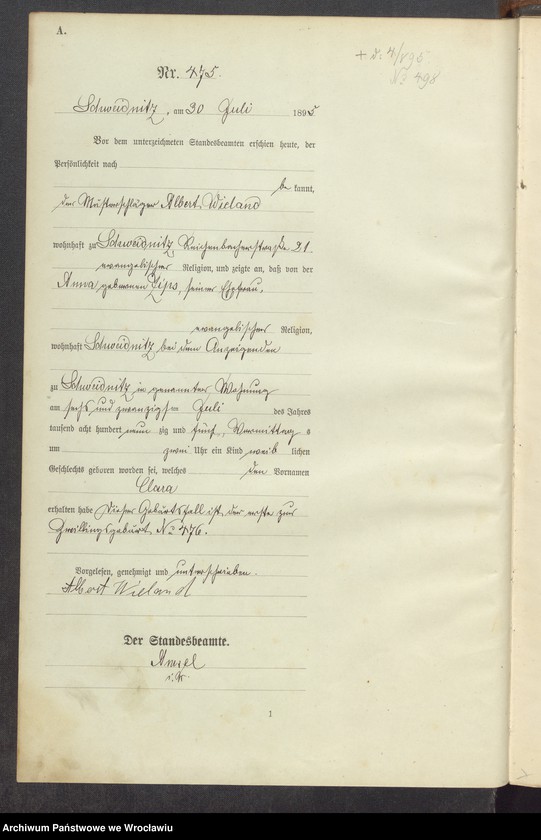 A.
Nr. 475.
Schweidnitz, am 30 Juli 1895
Vor dem unterzeichneten Standesbeamten erschien heute, der
Persönlichkeit nach
be kannt,
der Albert Wieland
wohnhaft zu Schweidnitz Reichenbacherstraße 21
evangelischer Religion, und zeigte an, daß von der
Anna geborenen Zips, seiner Ehefrau,
evangelischer Religion,
wohnhaft Schweidnitz bei dem Anzeigenden
zu Schweidnitz in genannter Wohnung
am sechs und zwanzigsten Juli des Jahres
tausend acht hundert neun zig und fünf, Vormittag s
um zwei Uhr ein Kind weib lichen
Geschlechts geboren worden sei, welches den Vornamen
Clara
erhalten habe Dieser Geburtsfall ist der erste zur
Zwillingsgeburt No 476.
Vorgelesen, genehmigt und unterschrieben.
Albert Wieland
Der Standesbeamte.
i. V.
1
Archiwum Państwowe we Wrocławiu